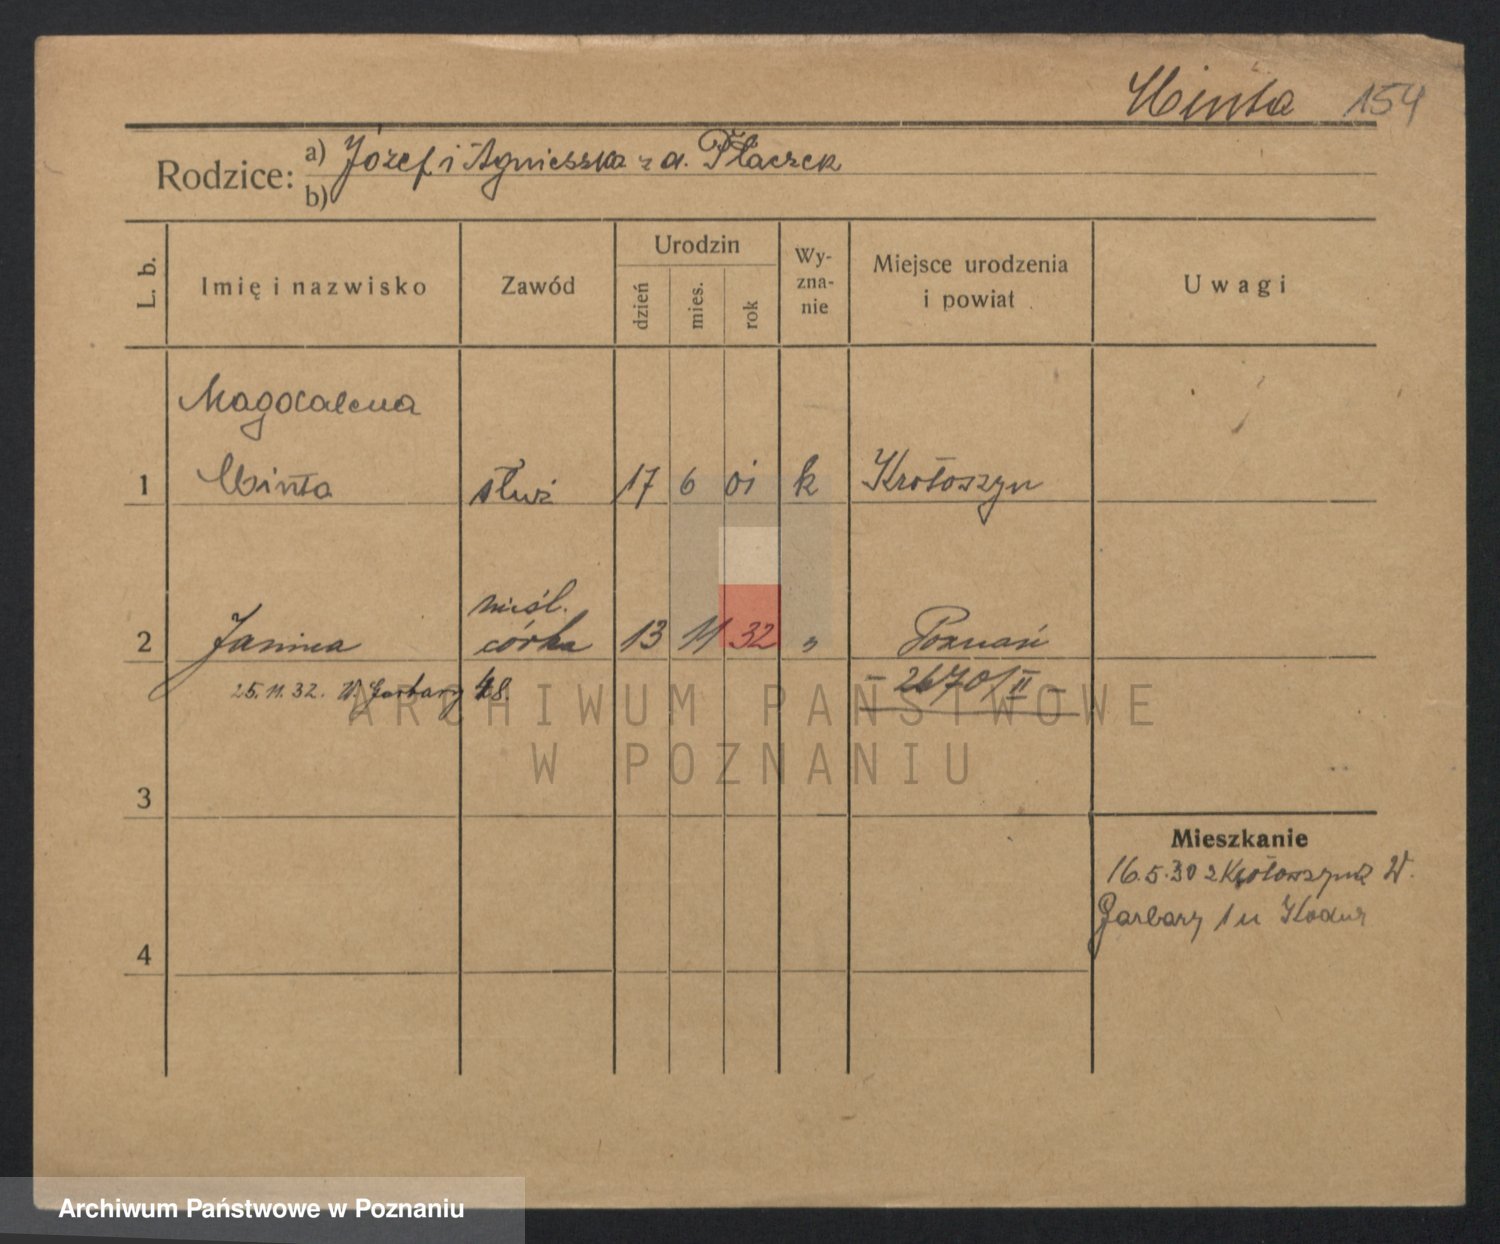 Minta 154
Rodzice: a) Józef i Agnieszka z d. Płaczek
b)
L. b.
Imię i nazwisko
Zawód
Urodzin
dzień
mies.
rok
Wy-
zna-
nie
Miejsce urodzenia
i powiat
Uwagi
Magdalena
1 Minta służ 17 6 01 k Krotoszyn
nieśl.
2 Janina córka 13 11 32 „ Poznań
25.11.32. W. Garbary 48. – 2670/II –
ARCHIWUM PAŃSTWOWE
W POZNANIU
3
Mieszkanie
16.5.30 z Krotoszyna W.
Garbary 1 u
4
Archiwum Państwowe w Poznaniu